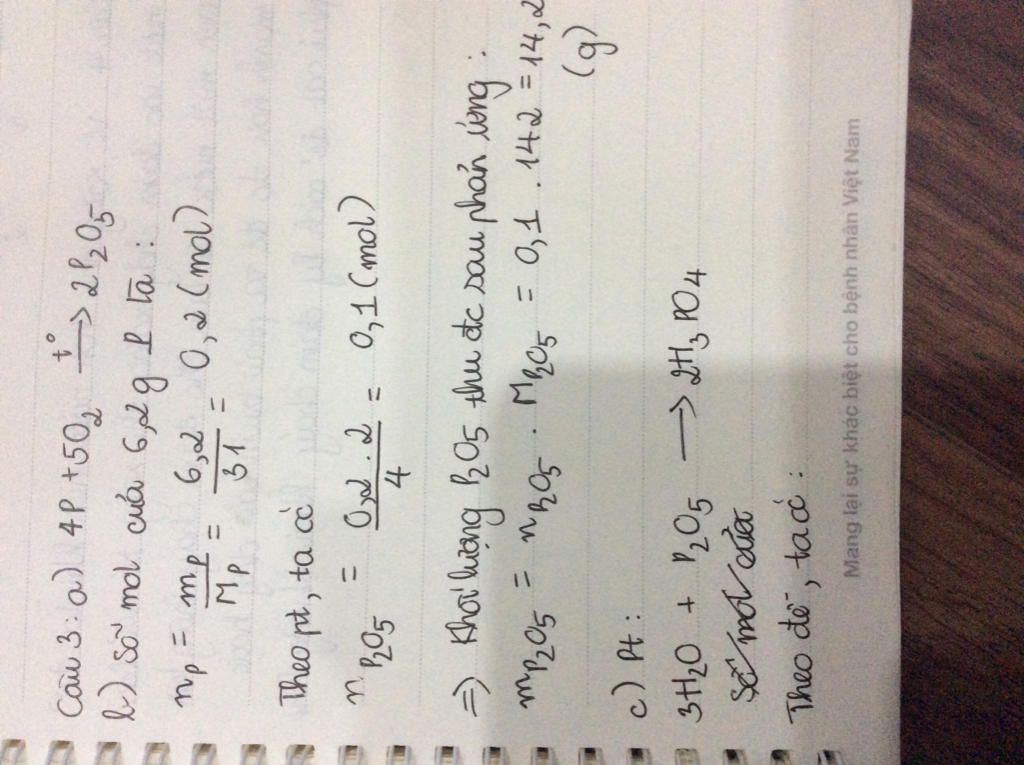 Câu 3: a) 4P + 5O₂ —t°→ 2P₂O₅
b) Số mol của 6,2g P là:
n_P = m_P/M_P = 6,2/31 = 0,2 (mol)
Theo pt, ta có
n_P₂O₅ = 0,2.2/4 = 0,1 (mol)
=) Khối lượng P₂O₅ thu đc sau phản ứng:
m_P₂O₅ = n_P₂O₅ . M_P₂O₅ = 0,1 . 142 = 14,2
(g)
c) Pt:
3H₂O + P₂O₅ → 2H₃PO₄
Số mol của
Theo đề, ta có:
Mang lại sự khác biệt cho bệnh nhân Việt Nam